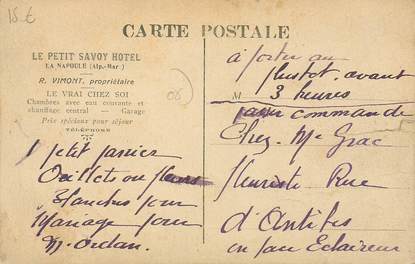 15 €
CARTE POSTALE
LE PETIT SAVOY HOTEL
LA NAPOULE (Alp.-Mar.)
R. VIMONT, propriétaire
LE VRAI CHEZ SOI
Chambres avec eau courante et
chauffage central — Garage
Prix spéciaux pour séjour
TÉLÉPHONE
1 petit panier
Oeillets ou fleurs
Blanches pour
Mariage pour
M.
(06)
à porter au
plustot, avant
M 3 heures
pour commande
Chez Me Grac
fleuriste Rue
d'Antibes
en face Eclaireur